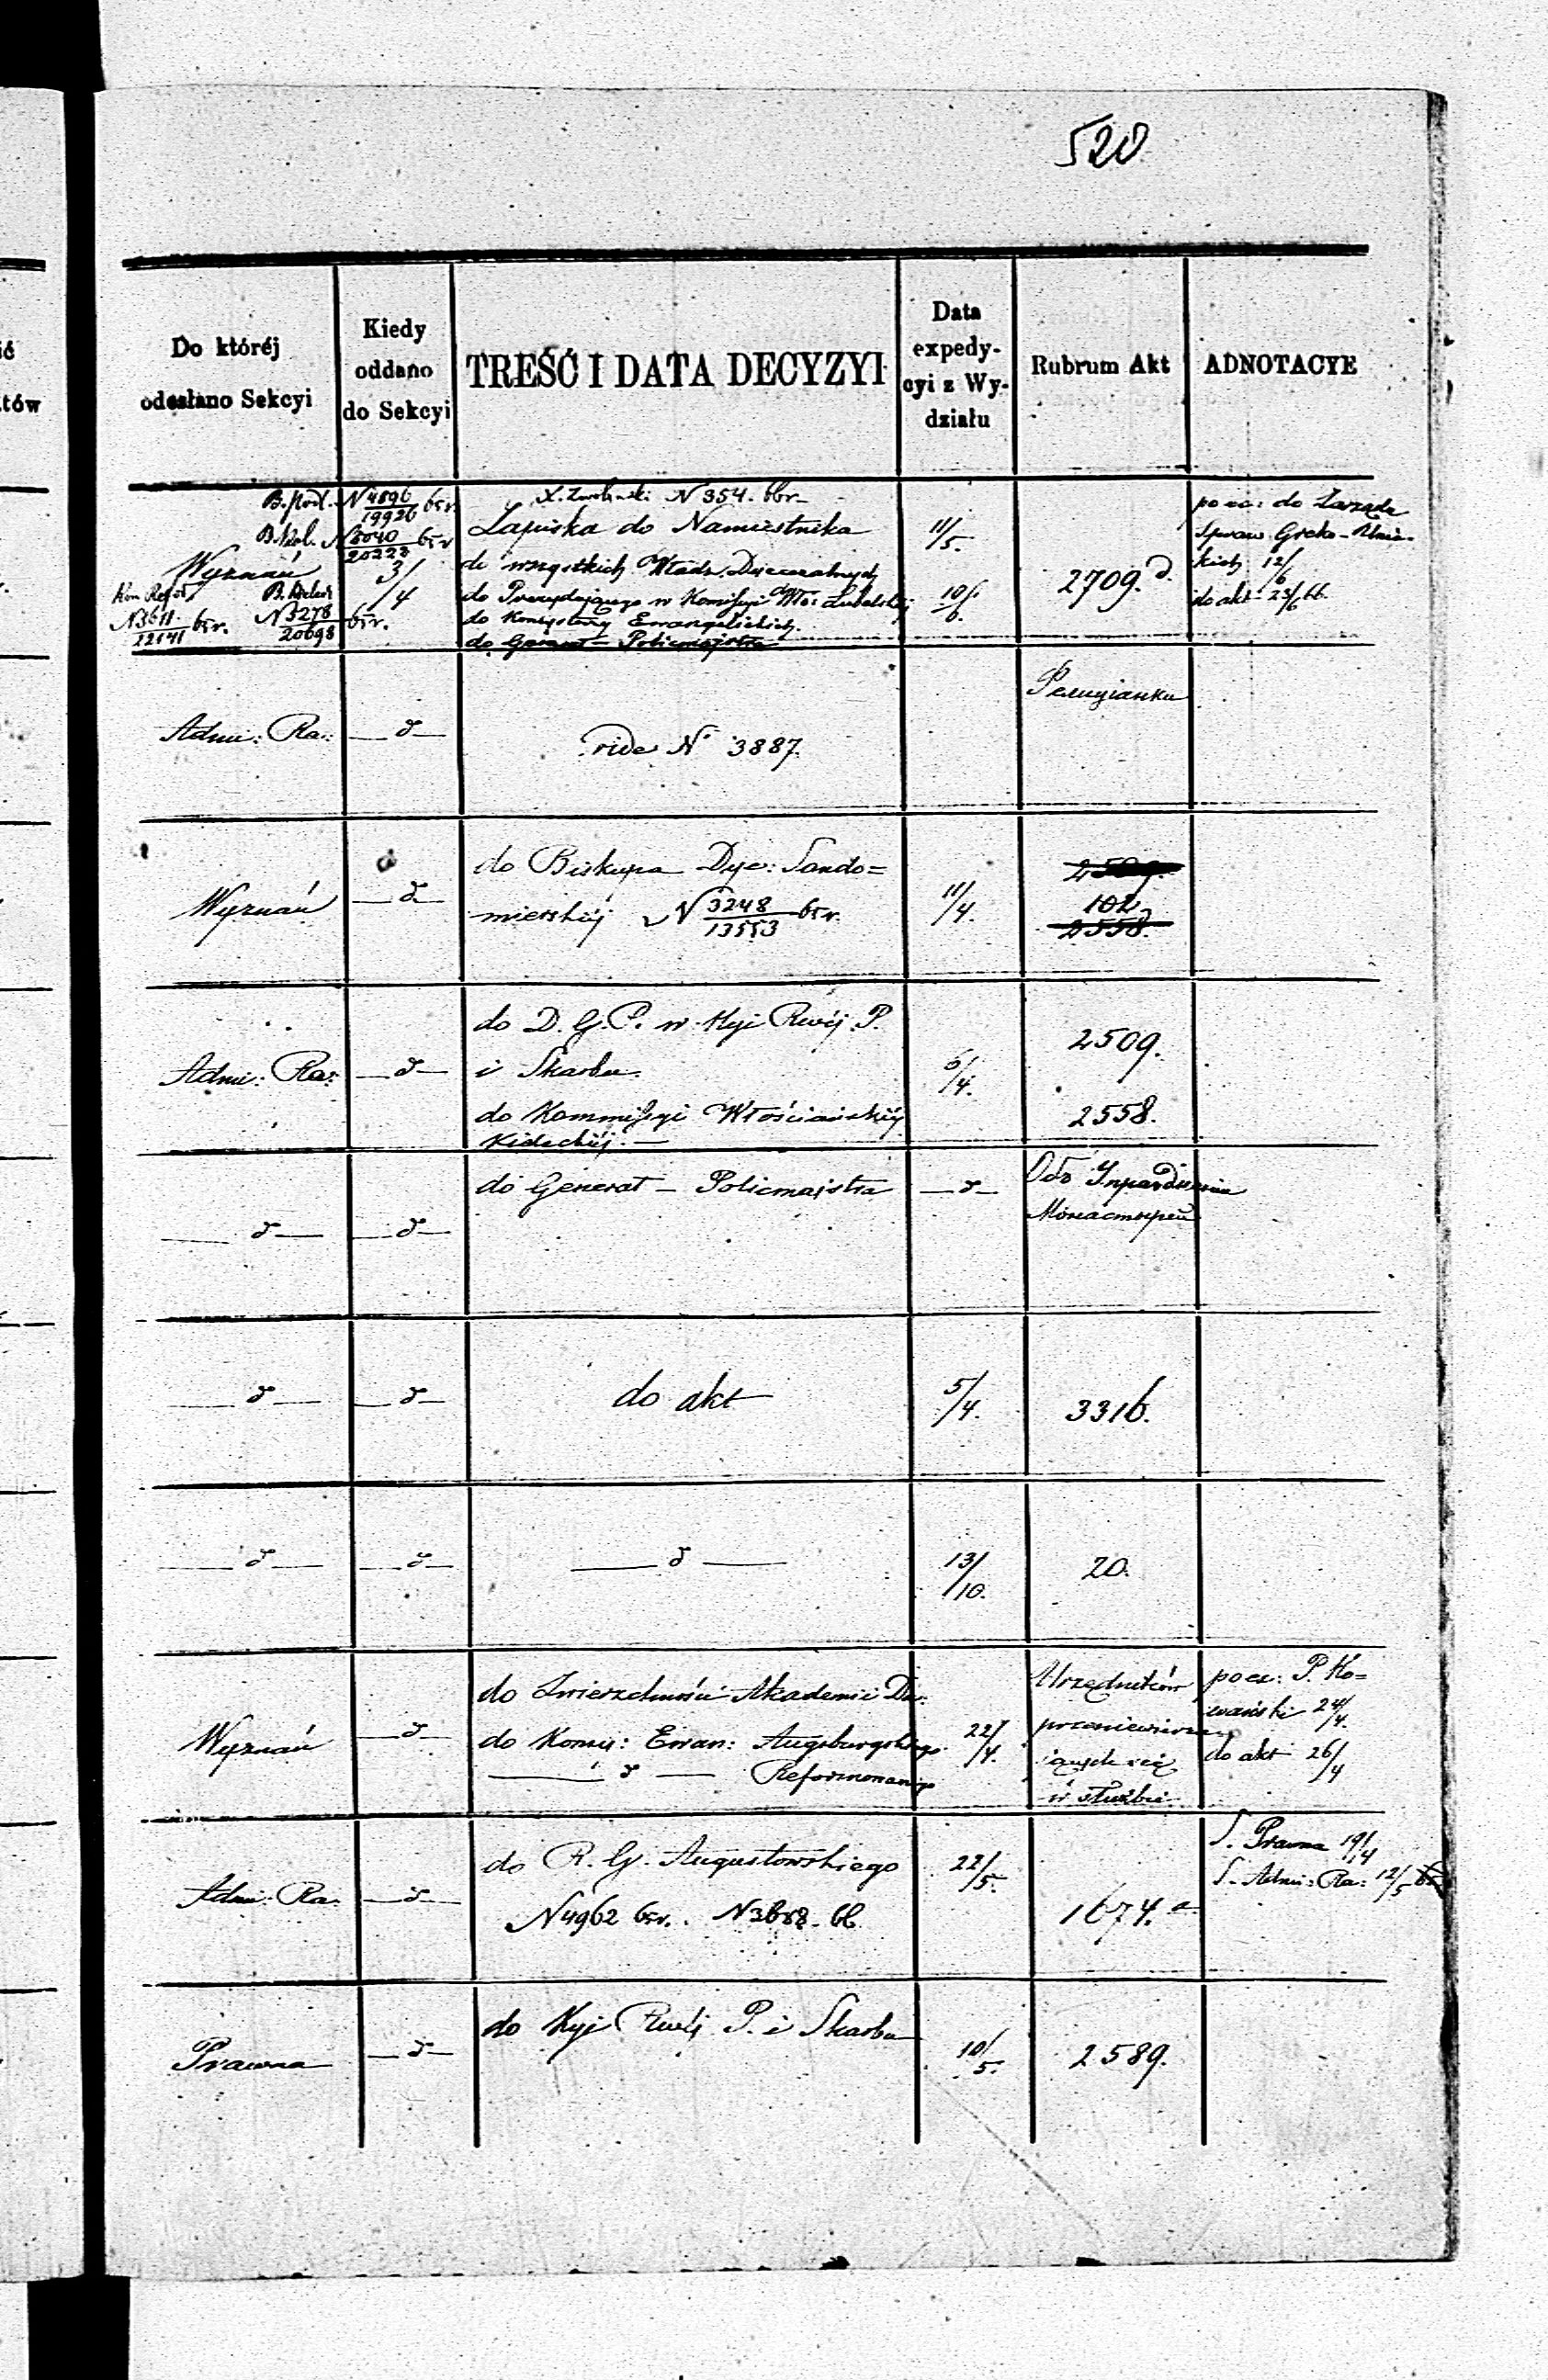 520
Do któréj
odesłano Sekcyi
Kiedy
oddano
do Sekcyi
TREŚĆ I DATA DECYZYI
Data
expedy-
cyi z Wy-
działu
Rubrum Akt
ADNOTACYE
B. Podl. N 4896/19926 65 r.
N 3040/20223 65 r
Wyznań
3/4
N 3611/12141 65 r. N 3278/20698 65 r.
N 354. 66 r.
Zapiska do Namiestnika
do wszystkich Władz Dyecezalnych
do Prezydującego w Komisyi Włoś: Lubelskiej
do Konsystorzy Ewangelickich.
do Generał - Policmajstra
11/5.
10/6.
2709. d.
po ex: do Zarządu
Spraw Greko-Unic-
kich 12/6
do akt 23/6 66.
Admi: Ra:
— d —
vide N° 3887.
Wyznań
— d —
do Biskupa Dye: Sando=
mierskiéj N 3248/13553 65 r.
11/4.
2509.
102
2558.
Admi: Ra:
— d —
do D. G. P. w Kyi Rwéj P.
i Skarbu.
do Kommissyi Włościańskiéj
Kieleckiéj. —
6/4.
2509.
2558.
— d —
— d —
do Generał - Policmajstra
— d —
Объ Упраздненіи
Монастырей
— d —
— d —
do akt
5/4.
3316.
— d —
— d —
— d —
13/10.
20.
Wyznań
— d —
do Zwierzchności Akademii Du:
do Konsy: Ewan: Augsburgskiego
— d — Reformowanego
22/4.
Urzędników
przeniewierza
jących się
w służbie
po ex: P. Ko=
wański 24/4.
do akt 26/4
Admi: Ra:
— d —
do R. G. Augustowskiego
N 4962 65 r. N 3658. 66
22/5.
1674. a.
S. Prawna 19/4
S. Admi: Ra: 12/5
Prawna
— d —
do Kyi Rwéj P. i Skarbu
10/5.
2589.